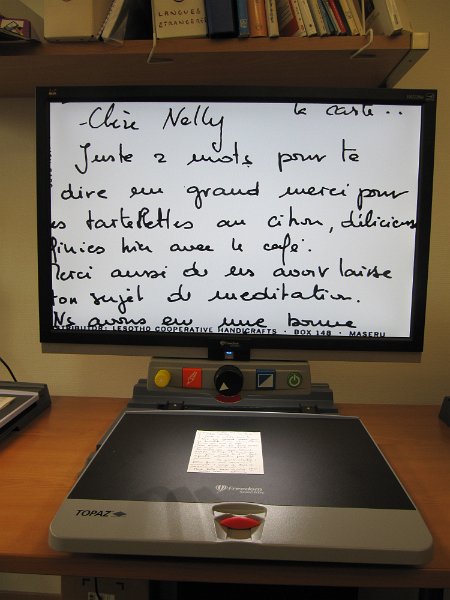 LANGUES
ETRANGERES
- Chère Nelly
la carte..
Juste 2 mots pour te
dire un grand merci pour
es tartelettes au citron, délicieus
finies hier avec le café.
Merci aussi de
avoir laissé
ton sujet de meditation.
Ns avons eu une bonne
DISTRIBUTOR: LESOTHO COOPERATIVE HANDICRAFTS · BOX 148 · MASERU
freedom
TOPAZ